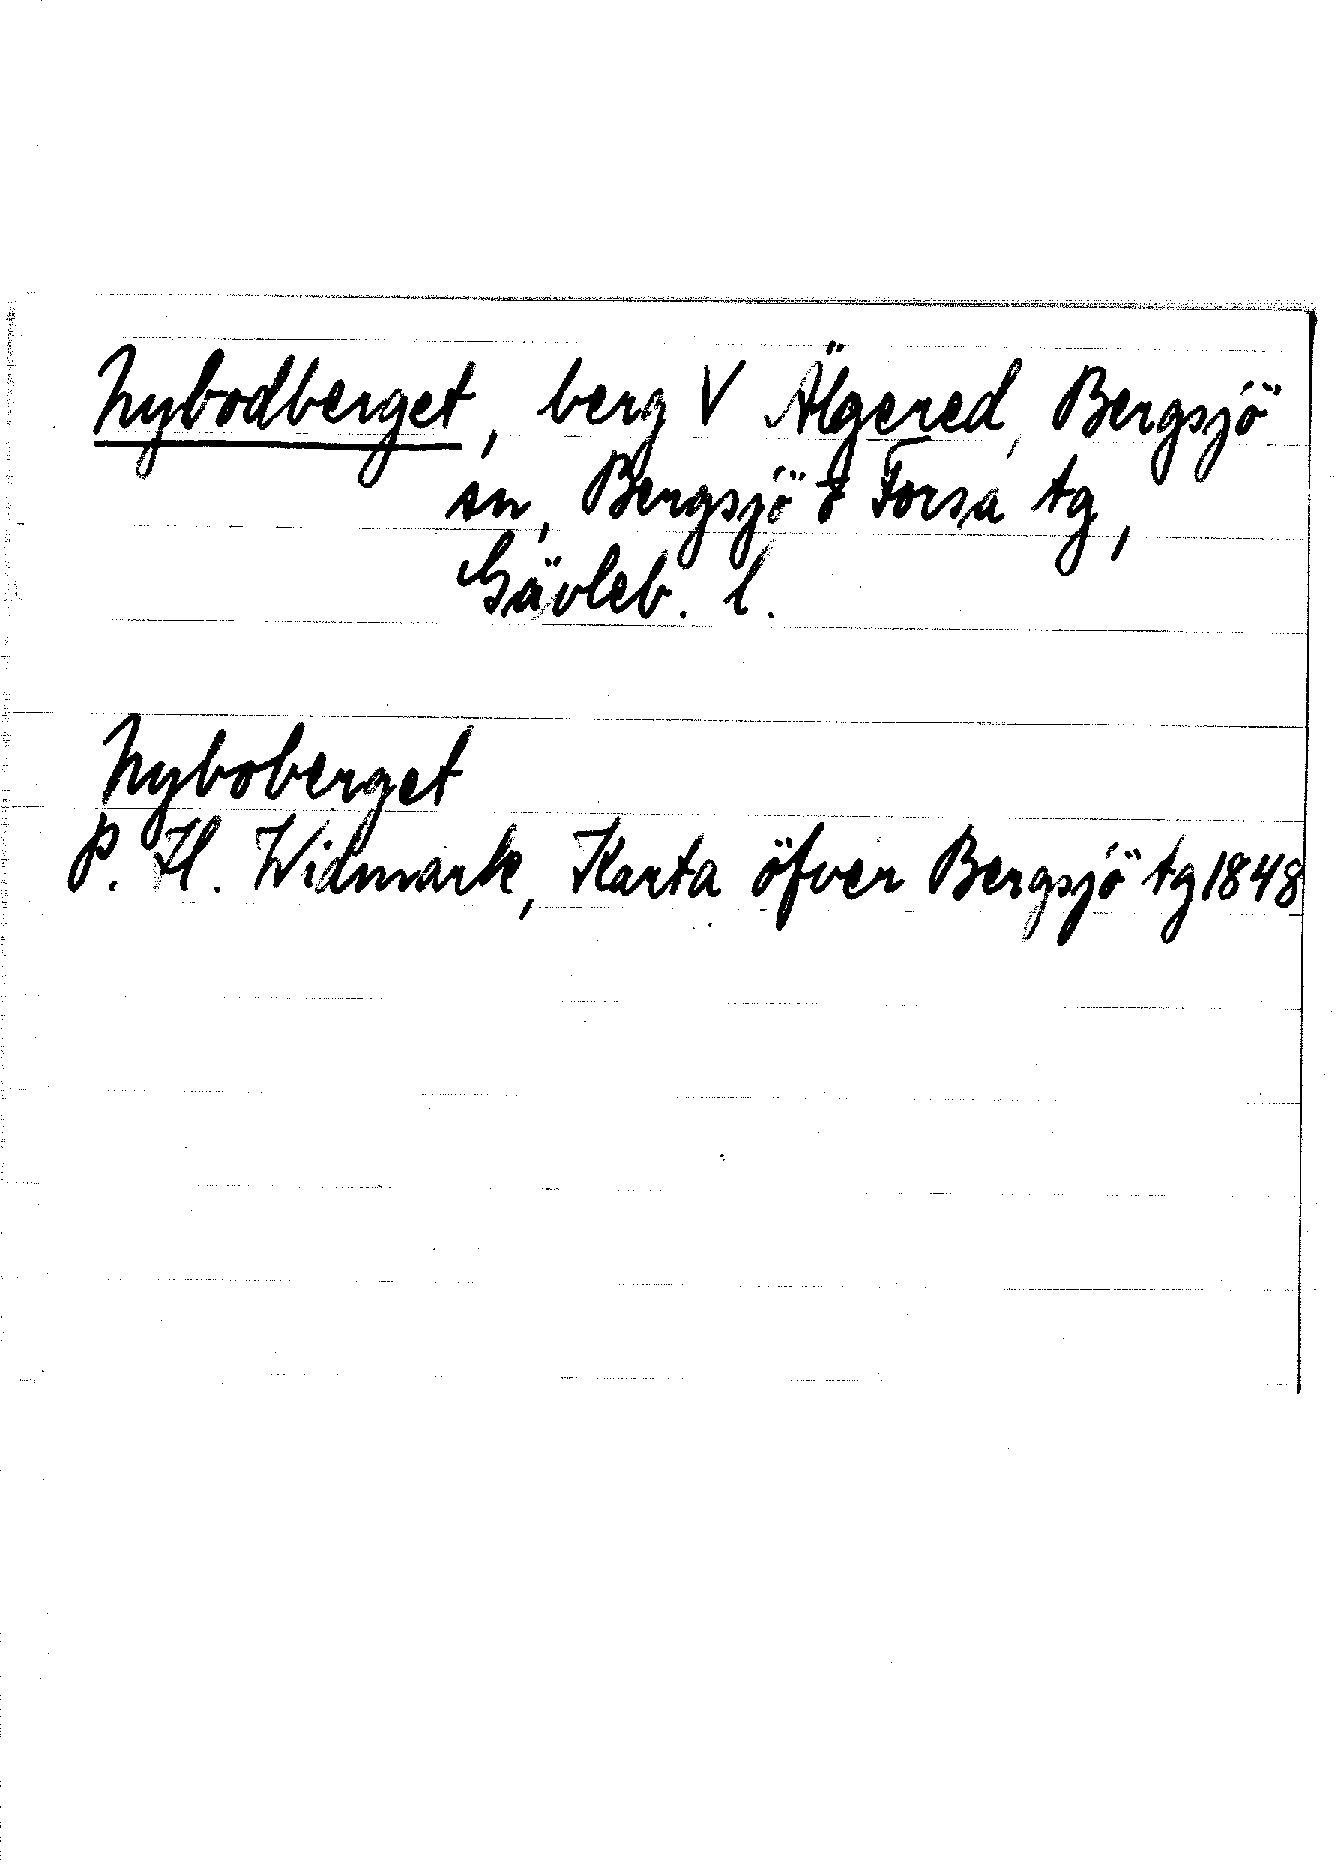 Nybodberget, berg V Älgered, Bergsjö
sn, Bergsjö & Forsa tg,
Gävleb. l.
Nyboberget
P. H. Widmark, Karta öfver Bergsjö tg 1848